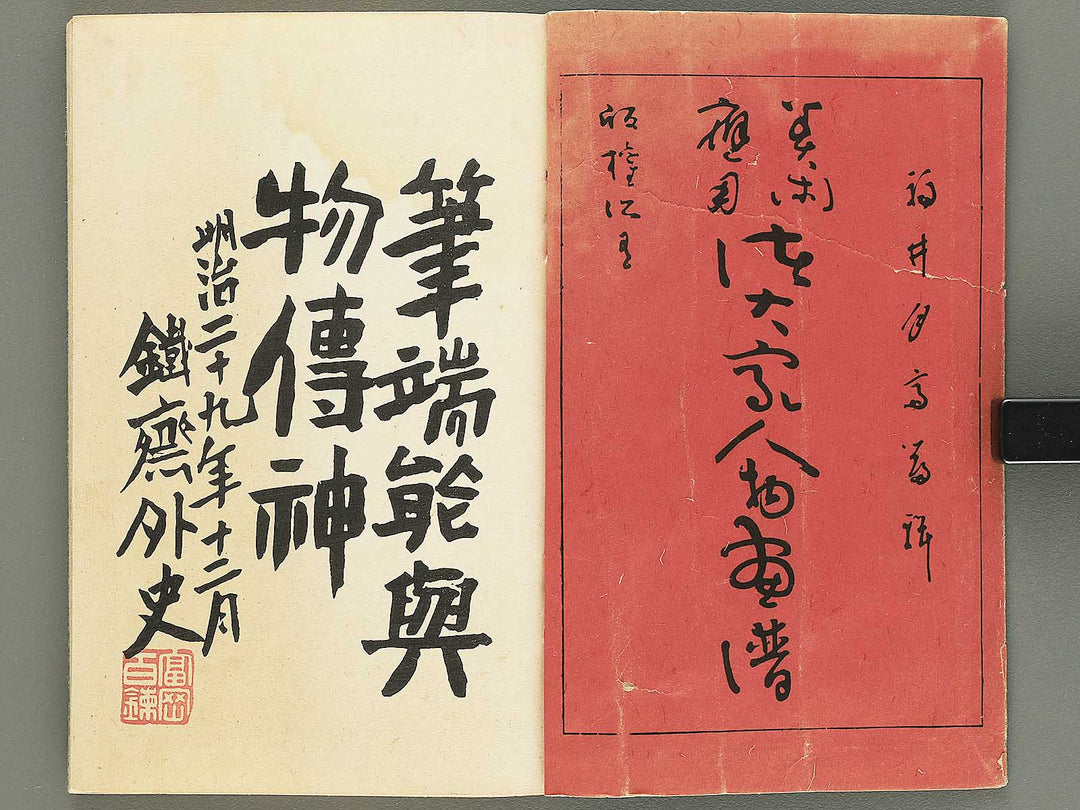 福井月斎 輯
美術
應用
諸大家人物画譜
版権所有
筆端能與
物傳神
明治二十九年十二月
鐵齋外史
富岡
百錬